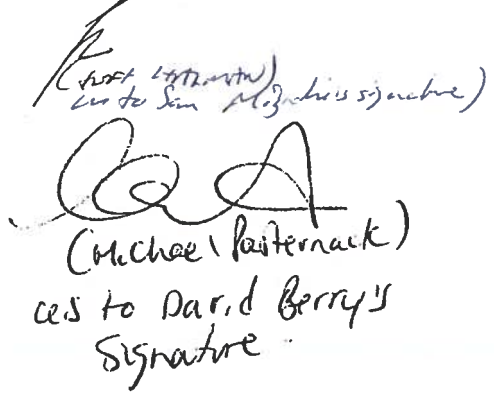 to Sam signature)
(Michael Pasternack)
as to David Berry's
Signature